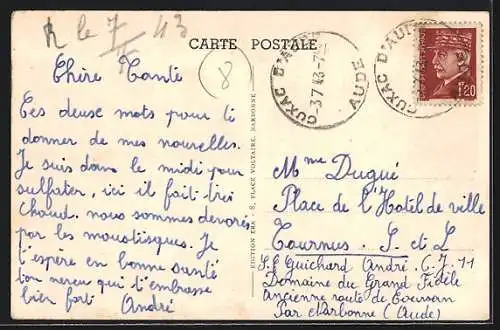 R le 7 43
CARTE POSTALE
8
CUXAC D'AUDE
-3 7 43
AUDE
CUXAC D'AUDE
1F20
Chère Tante
Ces deuse mots pour ti
donner de mes nouvelles.
Je suis dans le midi pour
sulfater, ici il fait trei
chaud. nous sommes devorés
par les moustisques. Je
t'espère en bonne santé
ton neveu qui t'embrasse
bien fort André
EDITION ERA S. S. PLACE VOLTAIRE, NARBONNE
Mme Dugué
Place de l'Hotel de ville
Tournus. S. et L
S.E Guichard André. C.J. 11
Domaine du Grand Fidèle
ancienne route de
Par Narbonne (Aude)